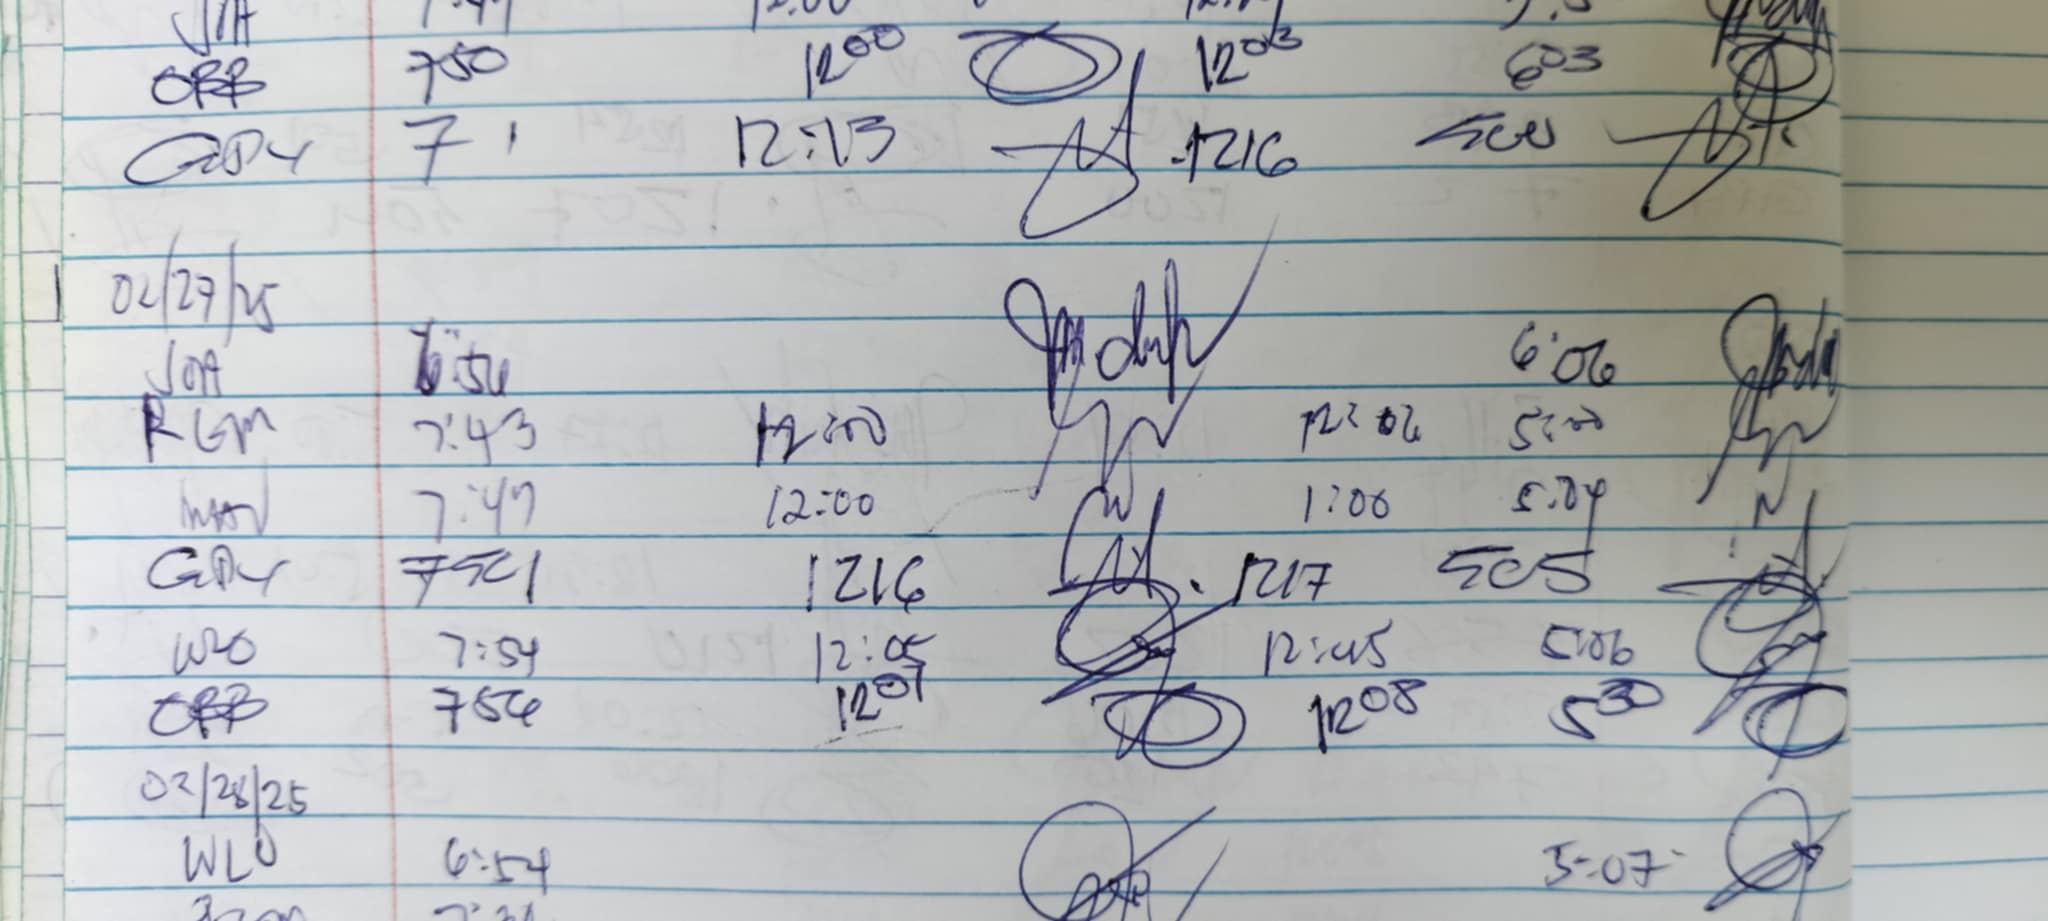 JOA 7:47 12:00
OBB 750 1200 1203 603
GDY 7 12:13 1216 500
02/27/25
JOA 6:54 6:06
RGM 7:43 12:00 12:02 5:00
7:47 12:00 1:00 5:04
GDY 751 1216 1217 505
WLO 7:54 12:05 12:45 5:06
OBB 756 1207 1208 530
02/28/25
WLO 6:54 5:07